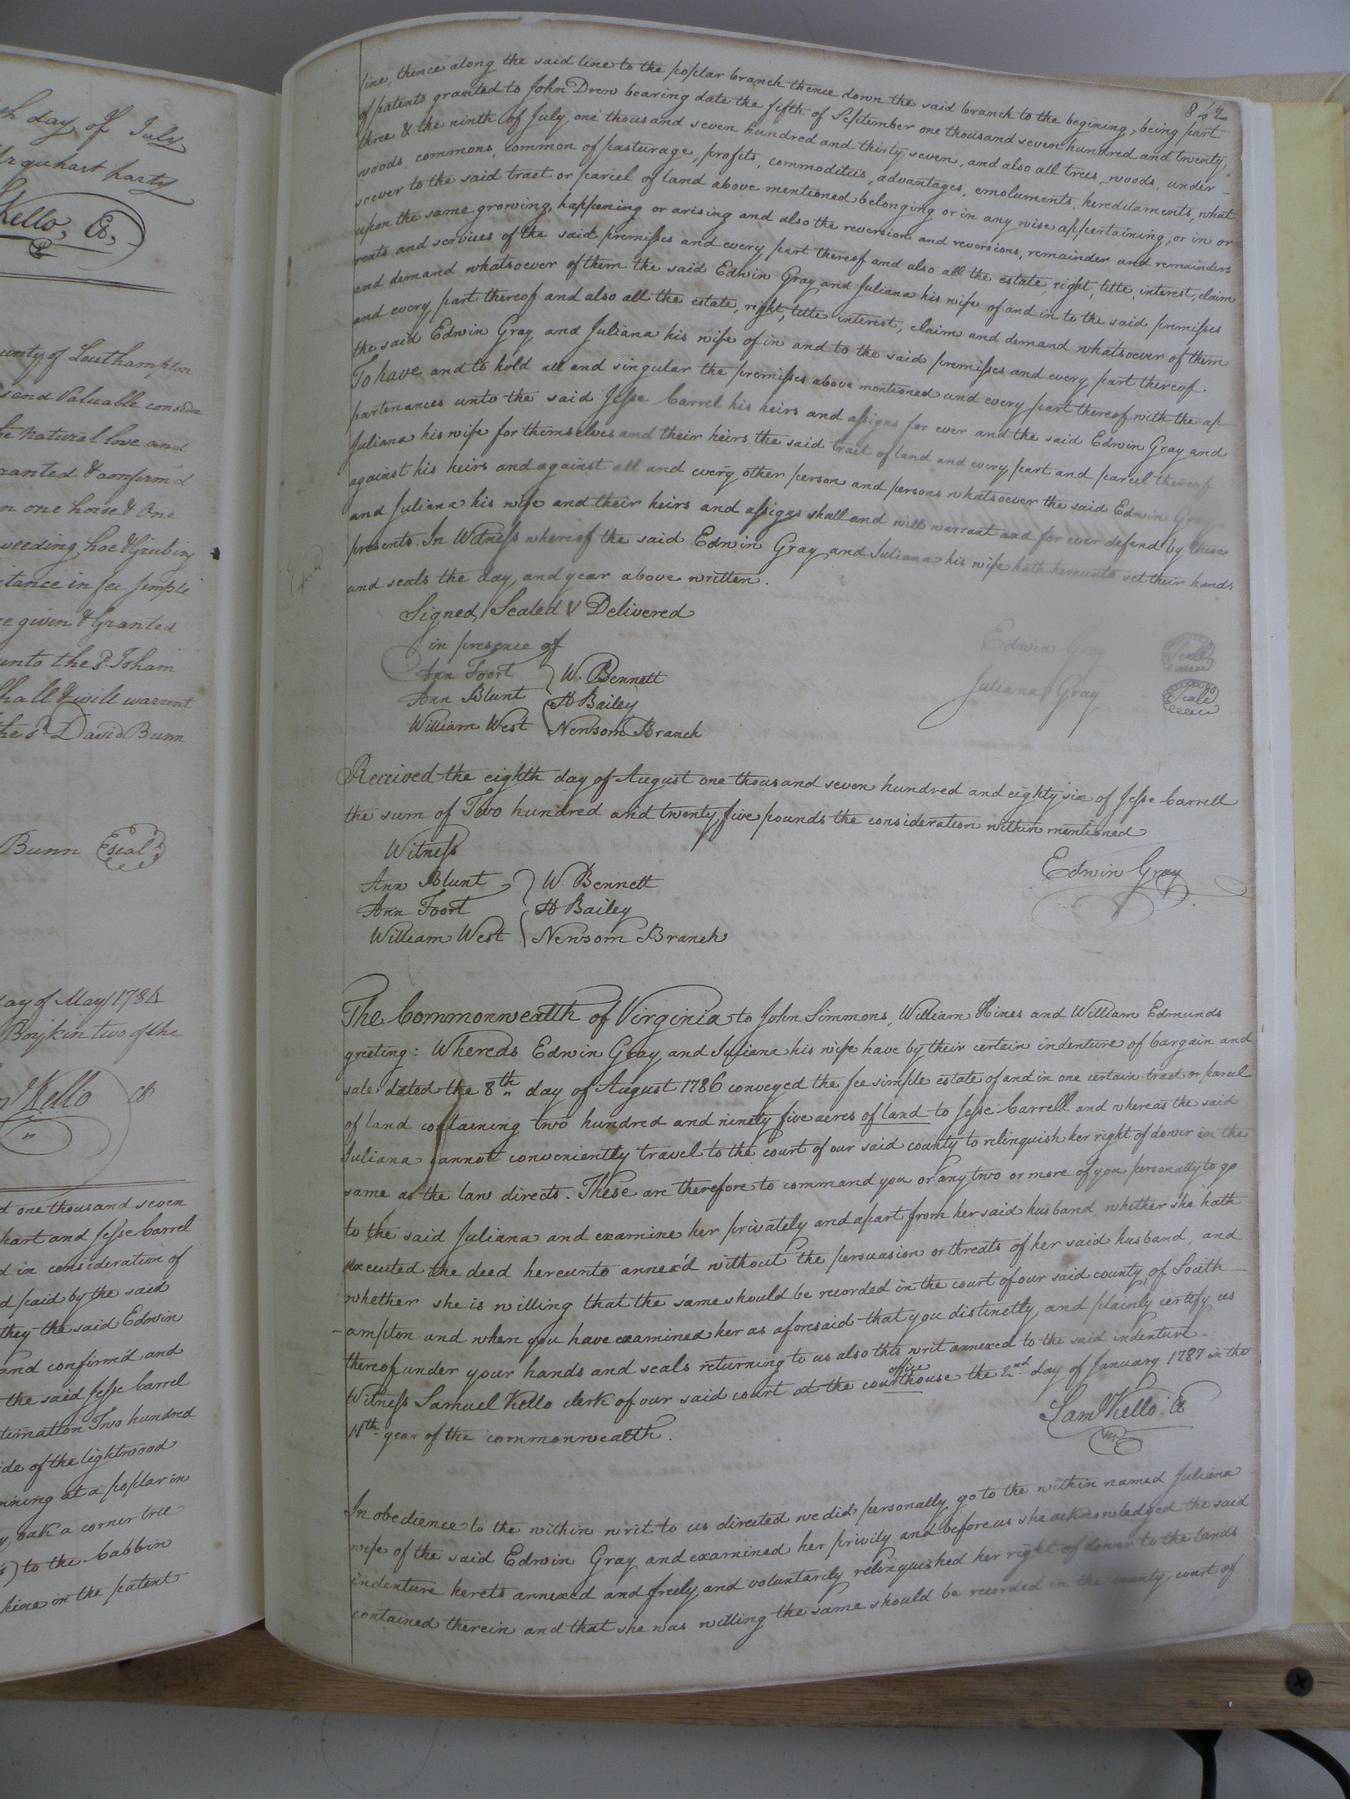 th day of July
Urquhart party
Kello, Ck.
unty of Southampton
s and Valuable conside
he natural love and
ranted & confirm'd
n one horse & One
weeding hoe & Grubing
itance in fee simple
ve given & Granted
unto the sd. Joham
shall & will warrent
the sd. David Bunn
Bunn seal
day of May 1784
Boykin two of the
Kello Ck
d one thousand seven
hart and Jesse Carrel
d in consideration of
d paid by the said
they the said Edwin
and confirm'd and
the said Jesse Carrel
timation Two hundred
ide of the lightwood
nning at a poplar in
y oak a corner tree
) to the Cabbin
kins on the patent
842
line, thence along the said line to the poplar branch thence down the said branch to the begining, being part
of patents granted to John Drew bearing date the fifth of September one thousand seven hundred and twenty,
three & the ninth of July, one thousand seven hundred and thirty seven, and also all trees, woods, under-
woods, commons, common of pasturage, profits, commodities, advantages, emoluments, hereditaments, what
soever to the said tract or parcel of land above mentioned belonging or in any wise appertaining, or in or
upon the same growing, happening or arising and also the reversion and reversions, remainder and remainders
rents and services of the said premisses and every part thereof and also all the estate, right, title, interest, claim
and demand whatsoever of them the said Edwin Gray and Juliana his wife of and in to the said premisses
and every part thereof and also all the estate, right, title interest, claim and demand whatsoever of them
the said Edwin Gray and Juliana his wife of in and to the said premisses and every part thereof.
To have and to hold all and singular the premisses above mentioned and every part thereof with the ap
partenances unto the said Jesse Carrel his heirs and assigns for ever and the said Edwin Gray and
Juliana his wife for themselves and their heirs the said tract of land and every part and parcel thereof
against his heirs and against all and every other person and persons whatsoever the said Edwin Gray
and Juliana his wife and their heirs and assigns shall and will warrant and for ever defend by these
presents. In Witness whereof the said Edwin Gray and Juliana his wife hath hereunto set their hands
and seals the day and year above written.
Signed, Sealed & Delivered
in presence of
Edwin Gray Seal
Ann Foort W. Bennett
Juliana Gray Seal
Ann Blunt H Bailey
William West Newsom Branch
Received the eighth day of August one thousand seven hundred and eighty six of Jesse Carrell
the sum of Two hundred and twenty five pounds the consideration within mentioned
Witness
Edwin Gray
Ann Blunt W. Bennett
Ann Foort H Bailey
William West Newsom Branch
The Commonwealth of Virginia to John Simmons, William Hines and William Edmunds
greeting: Whereas Edwin Gray and Juliana his wife have by their certain indenture of bargain and
sale dated the 8th day of August 1786 conveyed the fee simple estate of and in one certain tract or parcel
of land containing two hundred and ninety five acres of land to Jesse Carrell and whereas the said
Juliana cannot conveniently travel to the court of our said county to relinquish her right of dower in the
same as the law directs. These are therefore to command you or any two or more of you personally to go
to the said Juliana and examine her privately and apart from her said husband, whether she hath
executed the deed hereunto annex'd without the persuasion or threats of her said husband, and
whether she is willing that the same should be recorded in the court of our said county of South
-ampton and when you have examined her as aforesaid that you distinctly and plainly certify us
thereof under your hands and seals returning to us also this writ annexed to the said indenture.
Witness Samuel Kello clerk of our said court at the courthouse office the 2nd day of January 1787 in the
11th year of the commonwealth.
Saml Kello Ck
In obedience to the within writ to us directed we did personally go to the within named Juliana
wife of the said Edwin Gray and examined her privily and before us she acknowledged the said
indenture hereto annexed and freely and voluntarily relinquished her right of dower to the lands
contained therein and that she was willing the same should be recorded in the county court of